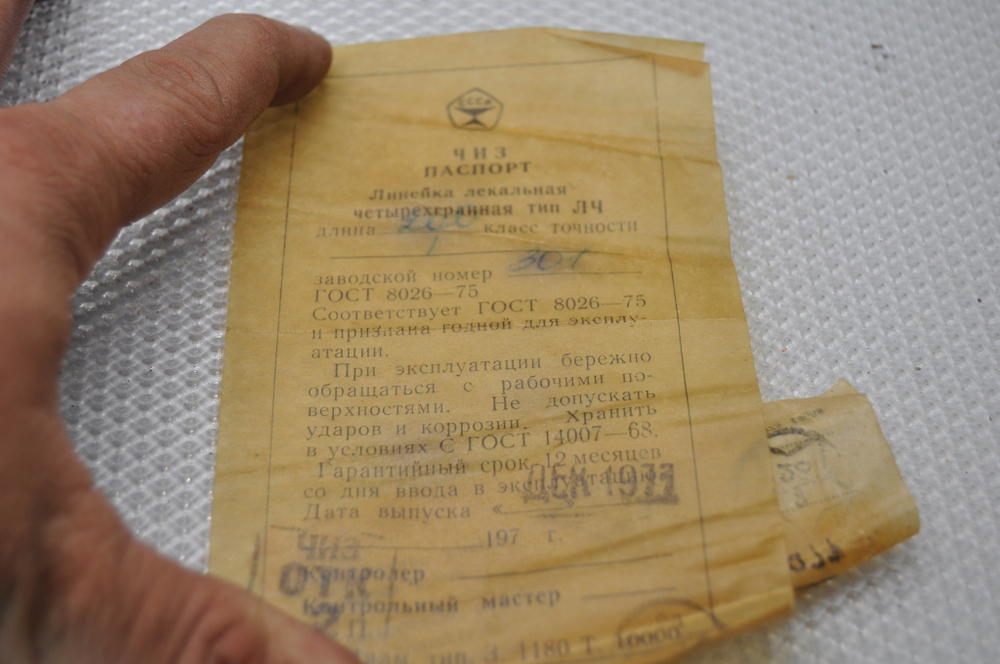 СССР
ЧИЗ
ПАСПОРТ
Линейка лекальная
четырехгранная тип ЛЧ
длина 200 класс точности
1
заводской номер 301
ГОСТ 8026—75
Соответствует ГОСТ 8026—75
и признана годной для эксплу-
атации.
При эксплуатации бережно
обращаться с рабочими по-
верхностями. Не допускать
ударов и коррозии. Хранить
в условиях С ГОСТ 14007—68.
Гарантийный срок 12 месяцев
со дня ввода в эксплуатацию
ДЕК 1977
Дата выпуска «
197 г.
ЧИЗ
ОТК
Контролер
Контрольный мастер
тип. З. 1180 Т. 10000